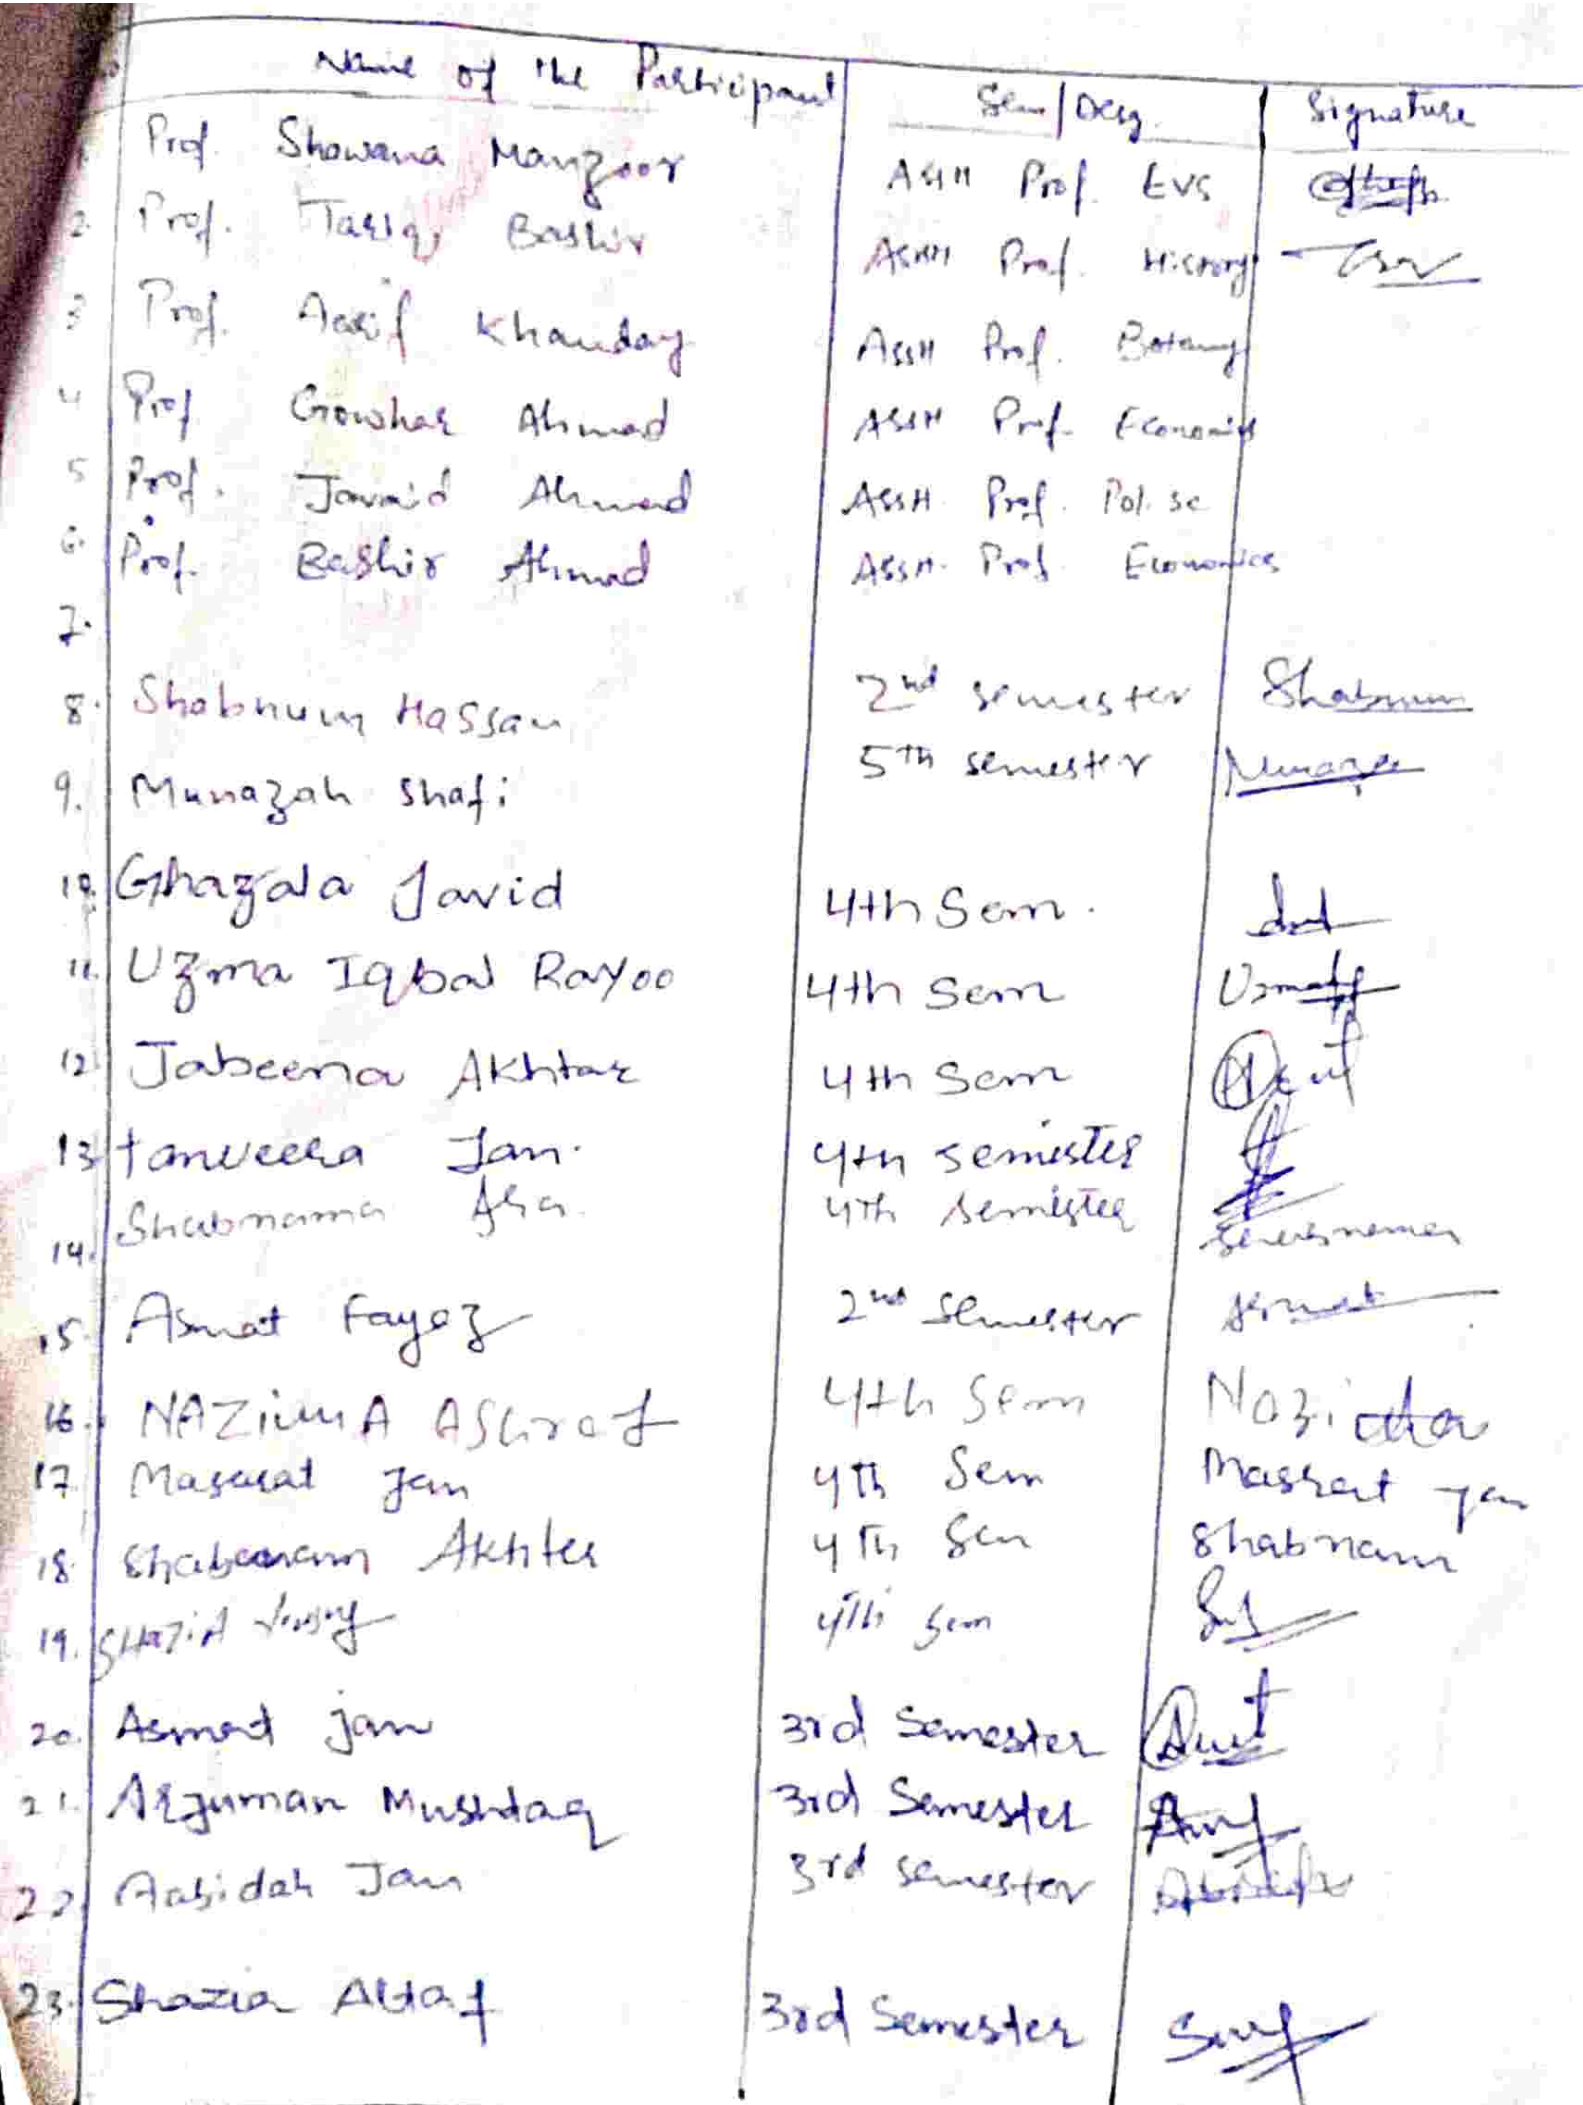 Name of the Participant Sem/Desg. Signature
1. Prof. Showana Manzoor Asstt Prof. EVS
2. Prof. Tariq Bashir Asstt Prof. History
3 Prof. Aarif Khanday Asstt Prof. Botany
4 Prof Gowhar Ahmad Asstt Prof. Economics
5 Prof. Javaid Ahmad Asstt. Prof. Pol. Sc
6. Prof. Bashir Ahmad Asstt. Prof. Economics
7.
8. Shabnum Hassan 2nd semester Shabnum
9. Munazah Shafi 5th semester Munaza
10. Ghazala Javid 4th Sem.
11. Uzma Iqbal Rayoo 4th Sem
12. Jabeena Akhtar 4th Sem
13. Tanveera Jan. 4th semister
14. Shabnama 4th semister
15. Asmat Fayaz 2nd semester Asmat
16. NAZiMA AShraf 4th Sem
17. Masarat Jan 4th Sem Masrat Jan
18. Akhter 4th Sem Shabnam
19. SHAZiA 4th Sem
20. Asmat jan 3rd Semester
21. Arjuman Mushtaq 3rd Semester
22. Aabidah Jan 3rd semester
23. Shazia Altaf 3rd Semester